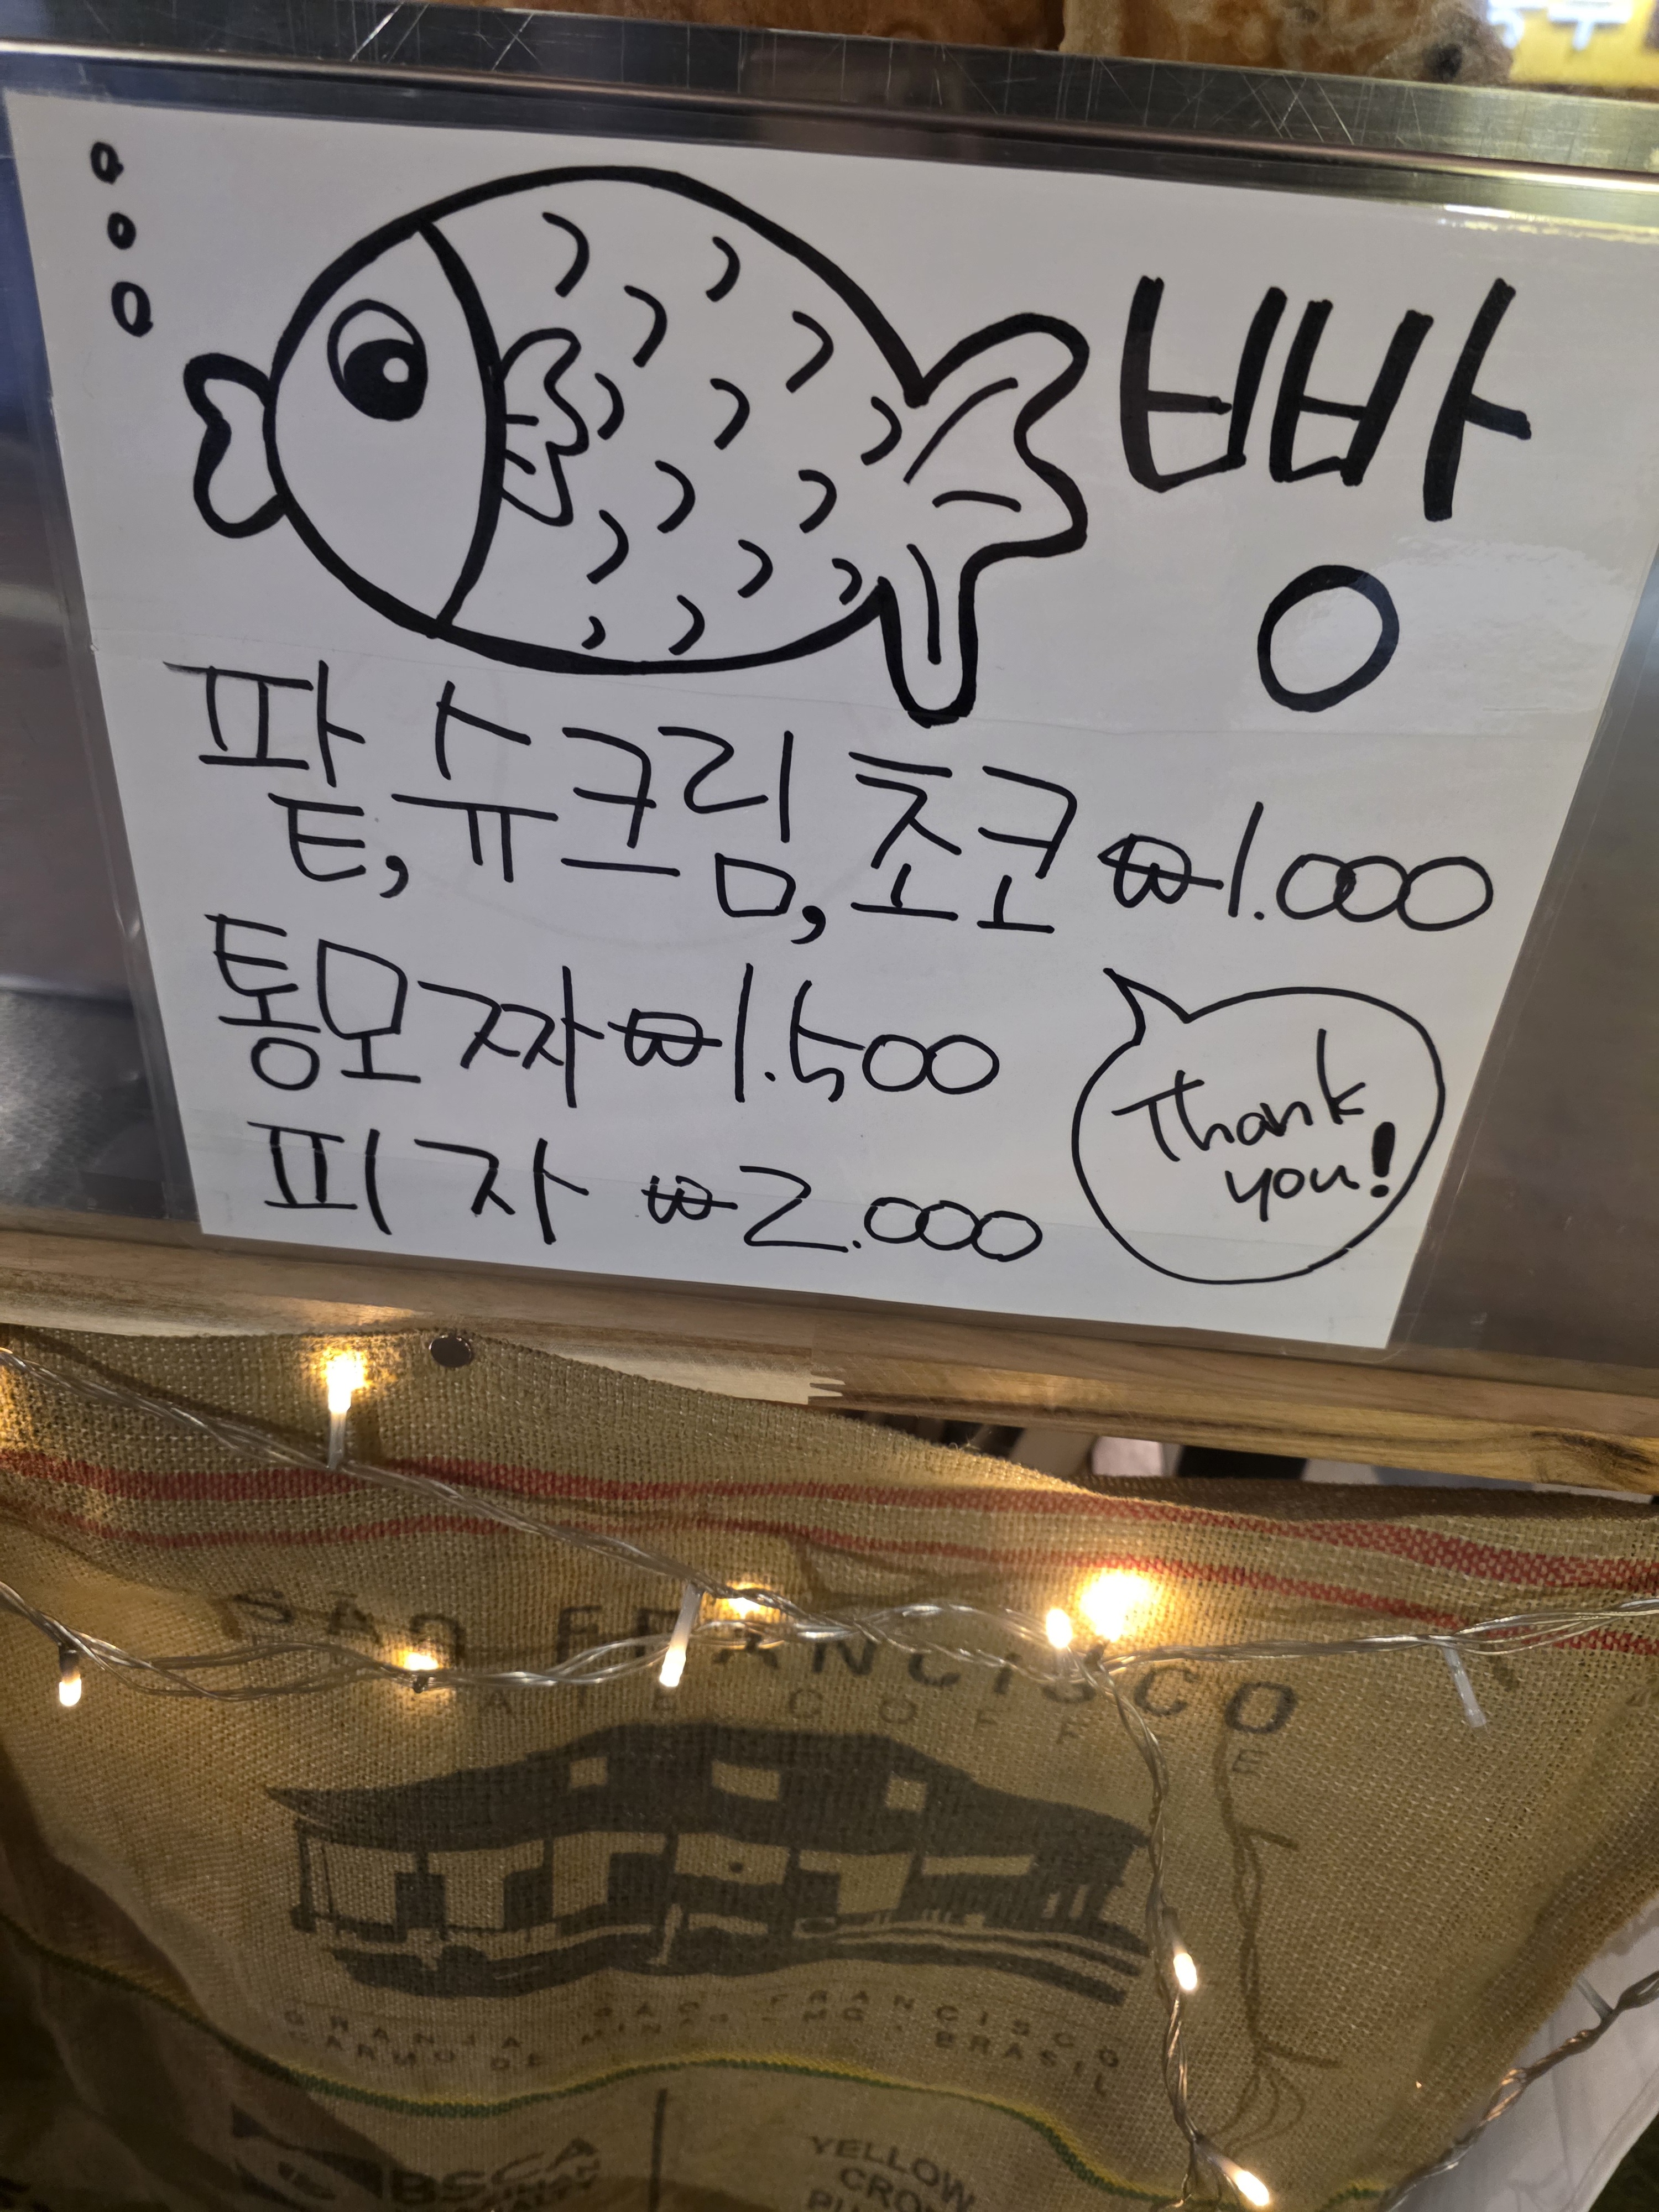 빵
팥, 슈크림, 초코 ₩1.000
통모짜 ₩1.500
피자 ₩2.000
Thank
you!
SAO FRANCISCO
COFFE
GRANJA SAO FRANCISCO
CARMO DE MINAS - MG - BRASIL
BSCA
YELLOW